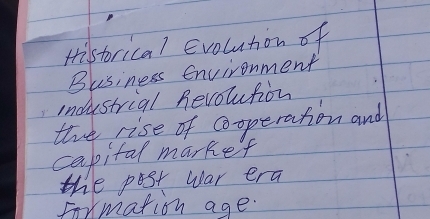 Historical Evolution of
Business Environment
industrial Revolution
the rise of Cooperation and
capital market
the post war era
Formation age.